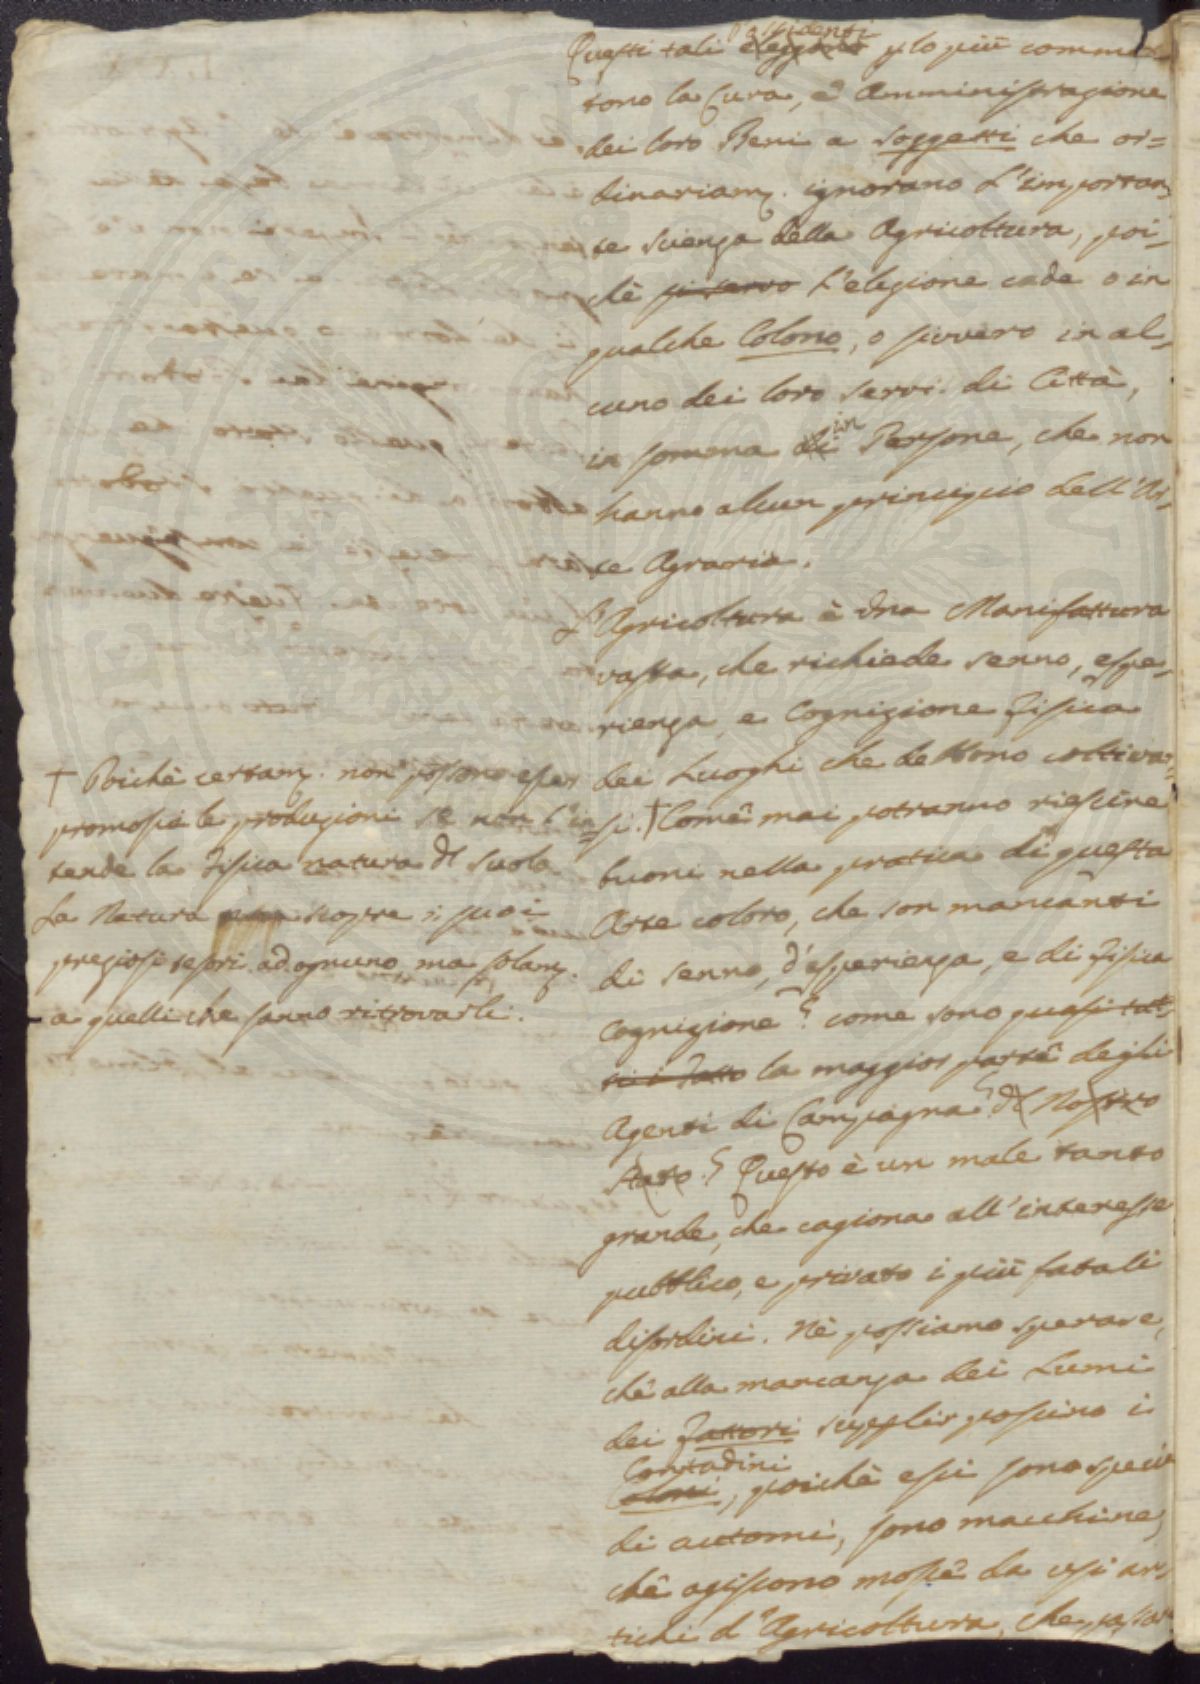 Possidenti
Questi tali eleggono p lo più commet-
tono la Cura, ed Amministrazione
dei loro Beni a soggetti che or=
dinariam. ignorano l'importan-
te scienza della Agricoltura, poi-
chè l'elezione cade o in
qualche Colono, o sivvero in al-
cuno dei loro servi di Città,
in
in somma di Persone, che non
hanno alcun principio dell'Ar-
te Agraria.
L'Agricoltura è una Manifattura
vasta, che richiede senno, espe-
rienza, e Cognizione Fisica
dei Luoghi che debbono coltivar-
si. † Come mai potranno riescire
buoni nella pratica di questa
Arte coloro, che son mancanti
di senno, d'esperienza, e di Fisica
Cognizione? come sono quasi tut-
ti i Fatto la maggior parte degli
Agenti di Campagna? del Nostro
Stato? Questo è un male tanto
grande, che cagiona all'interesse
pubblico, e privato i più fatali
disordini. Nè possiamo sperare,
che alla mancanza dei Lumi
dei Fattori supplir possino i
Contadini
Coloni, poichè essi sono specie
di automi, sono macchine,
che agiscono mosse da usi an-
tichi d'Agricoltura, che
† Poichè certam. non possono esser
promosse le produzioni se non s'in-
tende la Fisica natura del suolo
La Natura scopre i suoi
preziosi tesori ad ognuno ma solam.
a quelli che sanno ritrovarli.